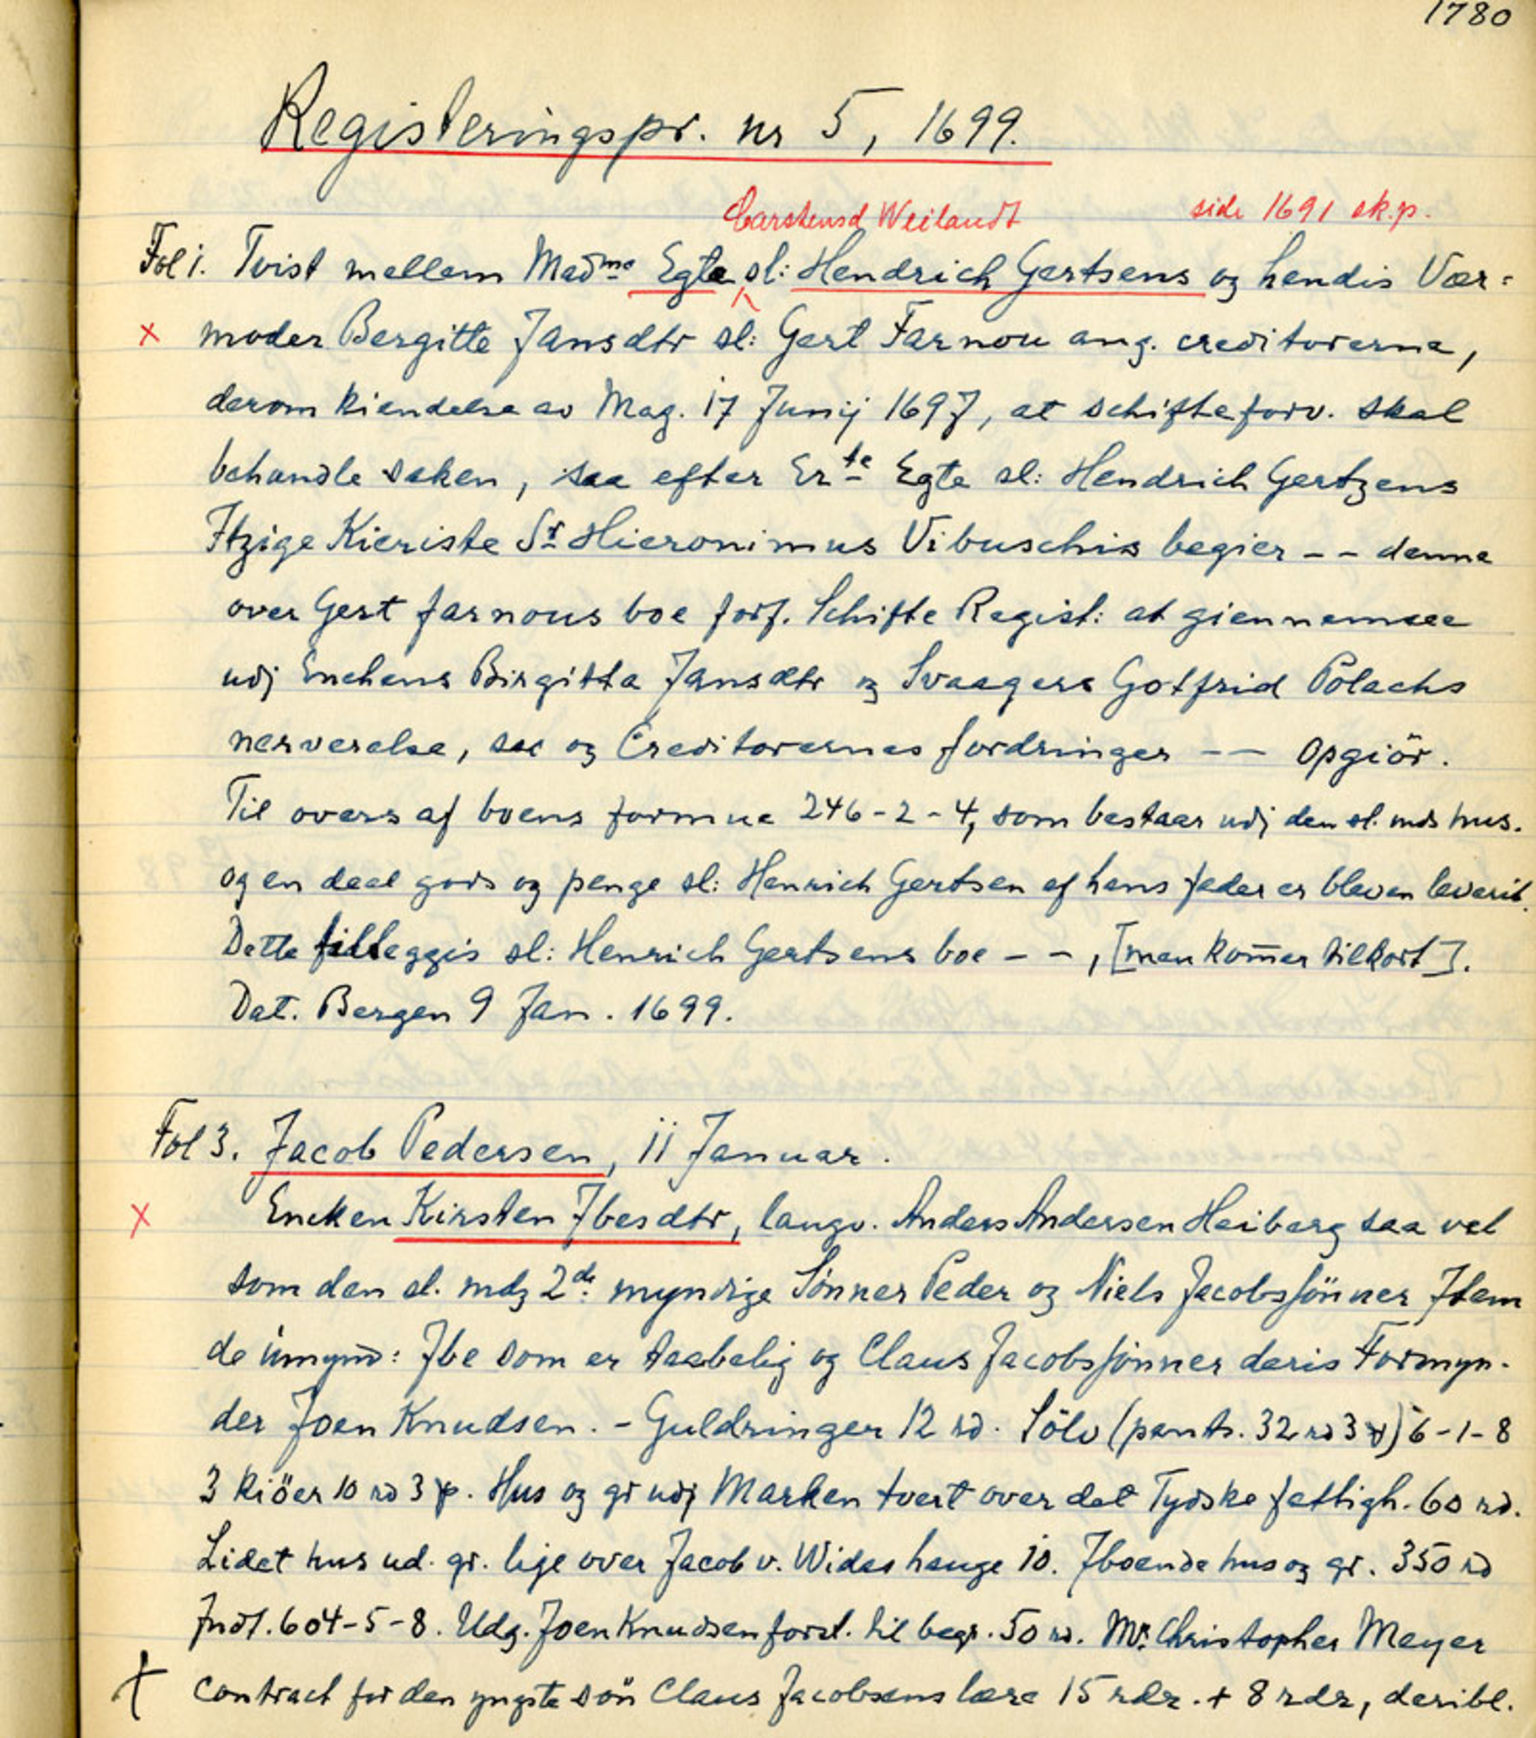 1780
Registeringspr. nr 5, 1699.
Carstensd Weilandt side 1691 sk.p.
Fol i. Tvist mellem Madme Egte sl: Hendrich Gertsens og hendis Vær=
x moder Bergitte Jansdtr sl: Gert Farnou ang. creditorerne,
derom kiendelse av Mag. 17 Junij 1697, at schifteforv. skal
behandle saken, saa efter Erte Egte sl: Hendrich Gertzens
Itzige Kieriste Sr Hieronimus Vibuschis begier -- denne
over Gert farnous boe forf. Schifte Regist: at giennemsee
udj Enchens Birgitta Jansdtr og Svaagers Gotfrid Polachs
nerverelse, sae og Creditorernes fordringer -- opgiör.
Til overs af boens formue 246-2-4, som bestaar udj den sl. mds hus.
og en deel gods og penge sl: Henrich Gertsen af hans fader er bleven leverit.
Dette tilleggis sl: Henrich Gertsens boe --, [men kom̅er tilkort].
Dat. Bergen 9 Jan. 1699.
Fol 3. Jacob Pedersen, ii Januar.
x Encken Kirsten Ibesdtr, laugv. Anders Andersen Heiberg saa vel
som den sl. mdz 2de: myndige Sönner Peder og Niels Jacobssönner Item
de umynd: Ibe som er taabelig og Claus Jacobssönner deris Formyn-
der Joen Knudsen. - Guldringer 12 rd. Sölv (pants. 32 rd 3 ) 6-1-8
3 kiöer 10 rd 3 . Hus og gr udj Marken tvert over det Tydske fattigh. 60 rd.
Lidet hus ud. gr. lige over Jacob v. Wides hauge 10. Iboende hus og gr. 350 rd
Indt. 604-5-8. Udg. Joen Knudsen forst. til begr. 50 rd. Mr. Christopher Meyer
+ contract for den yngste sön Claus Jacobsens lære 15 rdr. + 8 rdr, deribl.